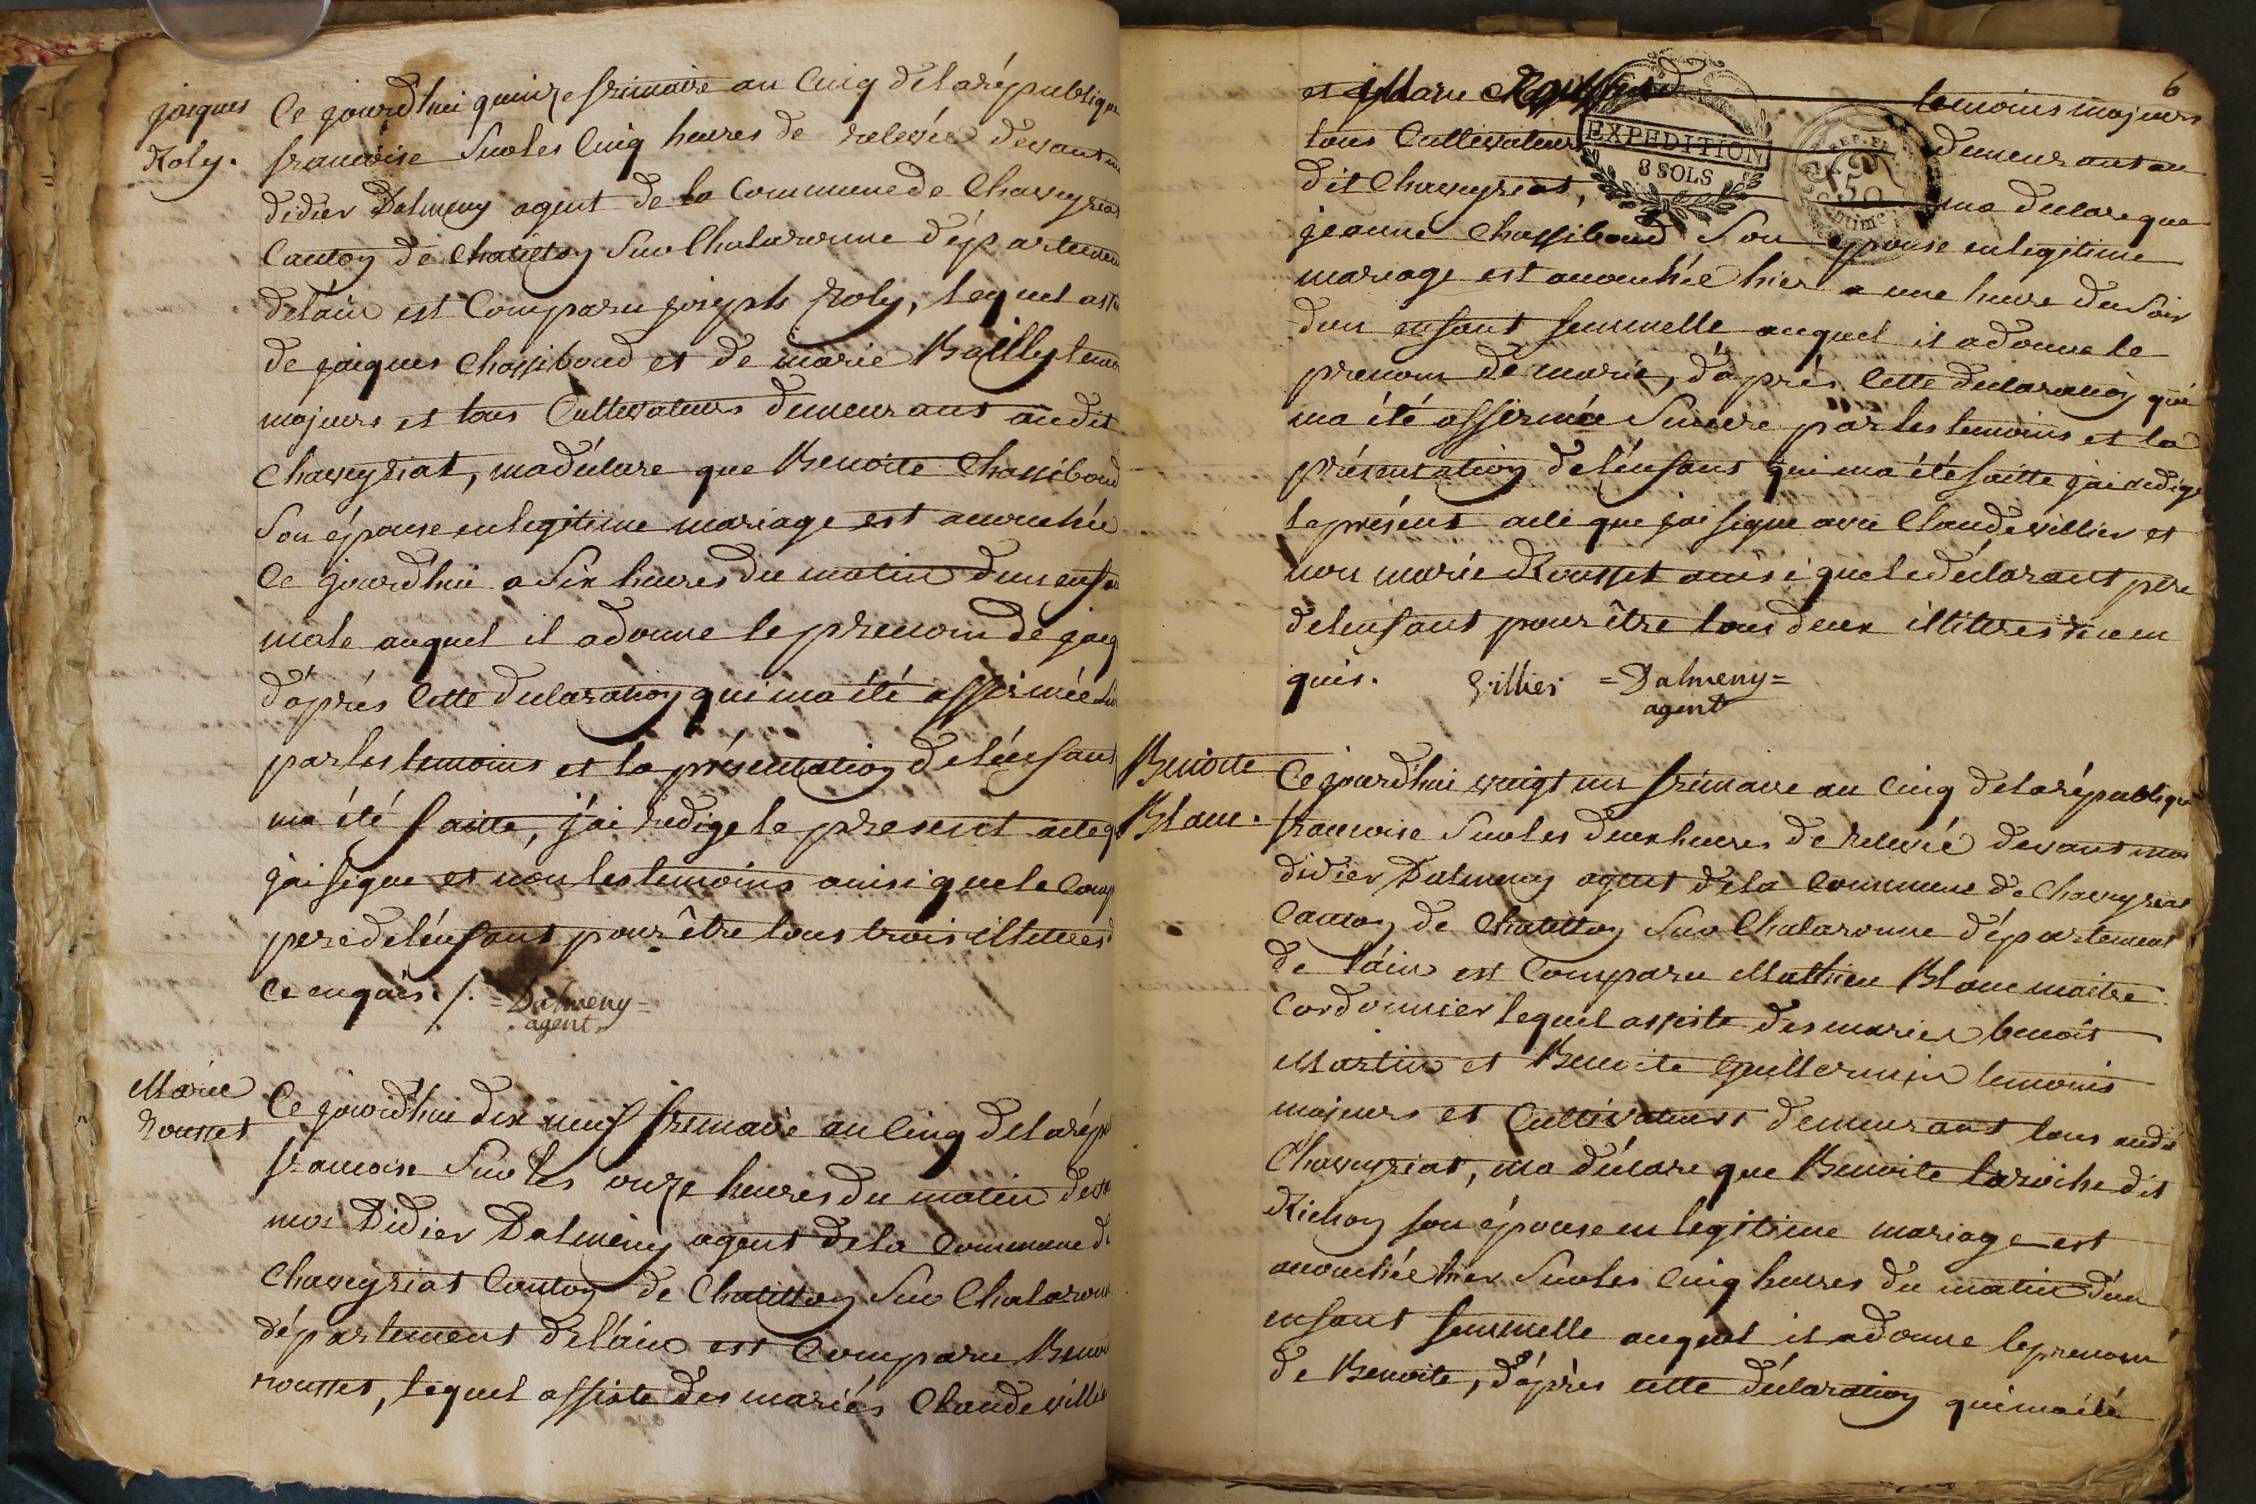 jacques
Roly.
Ce jourd'hui quinze frimaire an Cinq dela république
francoise Sur les Cinq heures de relevée devant m
didier Dalmeny agent de la Commune de Chaveyriat
Canton de Chatillon Sur Chalaronne départemen
delain est Comparu joseph Roly, lequel assis
de jacques Chassiboud et de marie Bailly temo
majeurs et tous Cultivateurs demeurans audit
Chaveyriat, ma déclare que Benoite Chassiboud
Son épouse en legitime mariage est acouchée
Ce jourd'hui a Six heures du matin dun enfan
male auquel il a donne le prenom de jacq
d'après Cette declaration qui ma été affirmée Sin
par les temoins et la présentation del'enfant
ma été faitte, j'ai redige le present acte q
j'ai signe et non les temoins ainsi que le Comp
pere del'enfant pour être tous trois illitterés d
Ce enquis. /. = Dalmeny =
agent
Marie
rousset
Ce jourd'hui dix neuf frimaire an Cinq dela rép
francoise Sur les onze heures du matin deva
moi Didier Dalmeny agent dela Commune de
Chaveyriat Canton de Chatillon Sur Chalaronn
département del'ain est Comparu Benoi
rousset, lequel assiste des mariés Claude villie
6
et Marie Rousset temoins majeurs
tous Cultivateurs demeurans au
dit Chaveyriat, ma declare que
EXPEDITION
8 SOLS
jeanne Chassiboud Son epouse en legitime
mariage est acouchée hier a une heure du Soir
dun enfant femmelle auquel il a donne le
prenom de marie, d'après Cette declaration qui
ma été affirmée Sincere par les temoins et la
présentation del'enfant qui ma été faitte j'ai redige
le présent acte que j'ai signe avec Claude villier et
non marie Rousset ainsi que le déclarant pere
del'enfant pour être tous deux illitteres de ce en
quis. Villier = Dalmeny =
agent
Benoite
Blanc.
Ce jourd'hui vingt un frimaire an Cinq dela république
francoise Sur les deux heures de relevée devant moi
didier Dalmeny agent dela Commune de Chaveyriat
Canton de Chatillon Sur Chalaronne département
de l'ain est Comparu Mathieu Blanc maitre
Cordonnier lequel assiste des maries benoit
Martin et Benoite Guillermin temoins
majeurs et Cultivateurs demeurans tous audit
Chaveyriat, ma déclare que Benoite Laroche dit
Richon son épouse en legitime mariage est
acouchée hier Sur les Cinq heures du matin d'un
enfant femmelle auquel il a donne le prenom
de Benoite, d'après cette déclaration qui ma été